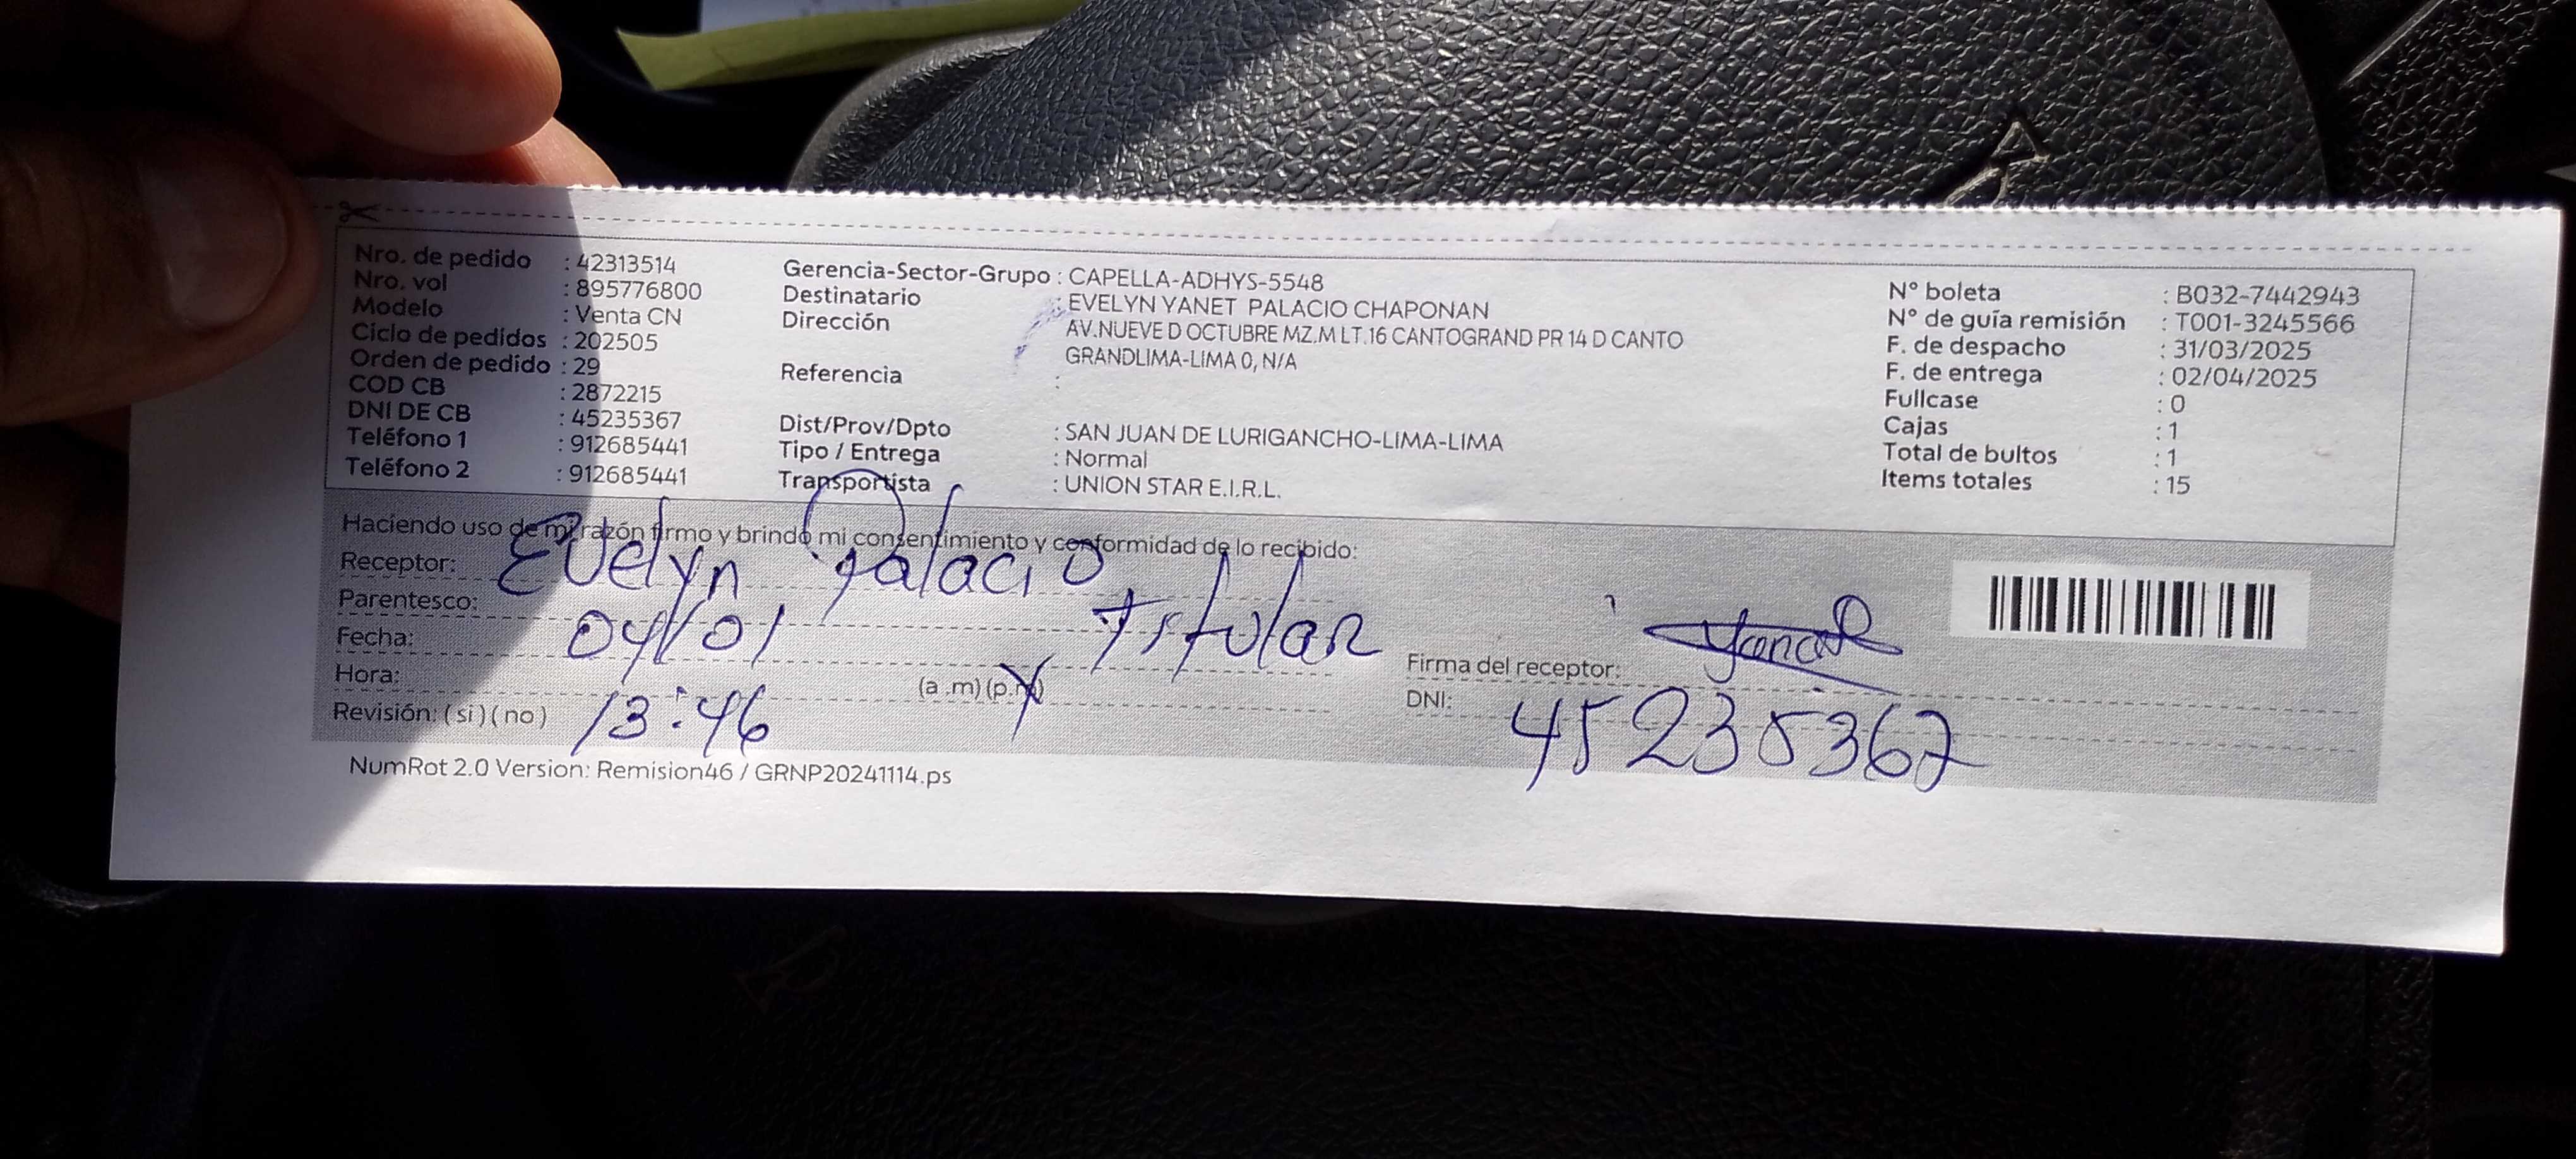 Nro. de pedido : 42313514
Nro. vol : 895776800
Modelo : Venta CN
Ciclo de pedidos : 202505
Orden de pedido : 29
COD CB : 2872215
DNI DE CB : 45235367
Teléfono 1 : 912685441
Teléfono 2 : 912685441
Gerencia-Sector-Grupo : CAPELLA-ADHYS-5548
Destinatario : EVELYN YANET PALACIO CHAPONAN
Dirección : AV.NUEVE D OCTUBRE MZ.M LT.16 CANTOGRAND PR 14 D CANTO
GRANDLIMA-LIMA 0, N/A
Referencia :
Dist/Prov/Dpto : SAN JUAN DE LURIGANCHO-LIMA-LIMA
Tipo / Entrega : Normal
Transportista : UNION STAR E.I.R.L.
N° boleta : B032-7442943
N° de guía remisión : T001-3245566
F. de despacho : 31/03/2025
F. de entrega : 02/04/2025
Fullcase : 0
Cajas : 1
Total de bultos : 1
Items totales : 15
Haciendo uso de mi razón firmo y brindo mi consentimiento y conformidad de lo recibido:
Receptor: Evelyn Palacio
Parentesco: Titular
Fecha: 04/01
Hora: 13:46 (a.m)(p.m)
Revisión: (si)(no)
Firma del receptor:
DNI: 45235367
NumRot 2.0 Version: Remision46 / GRNP20241114.ps